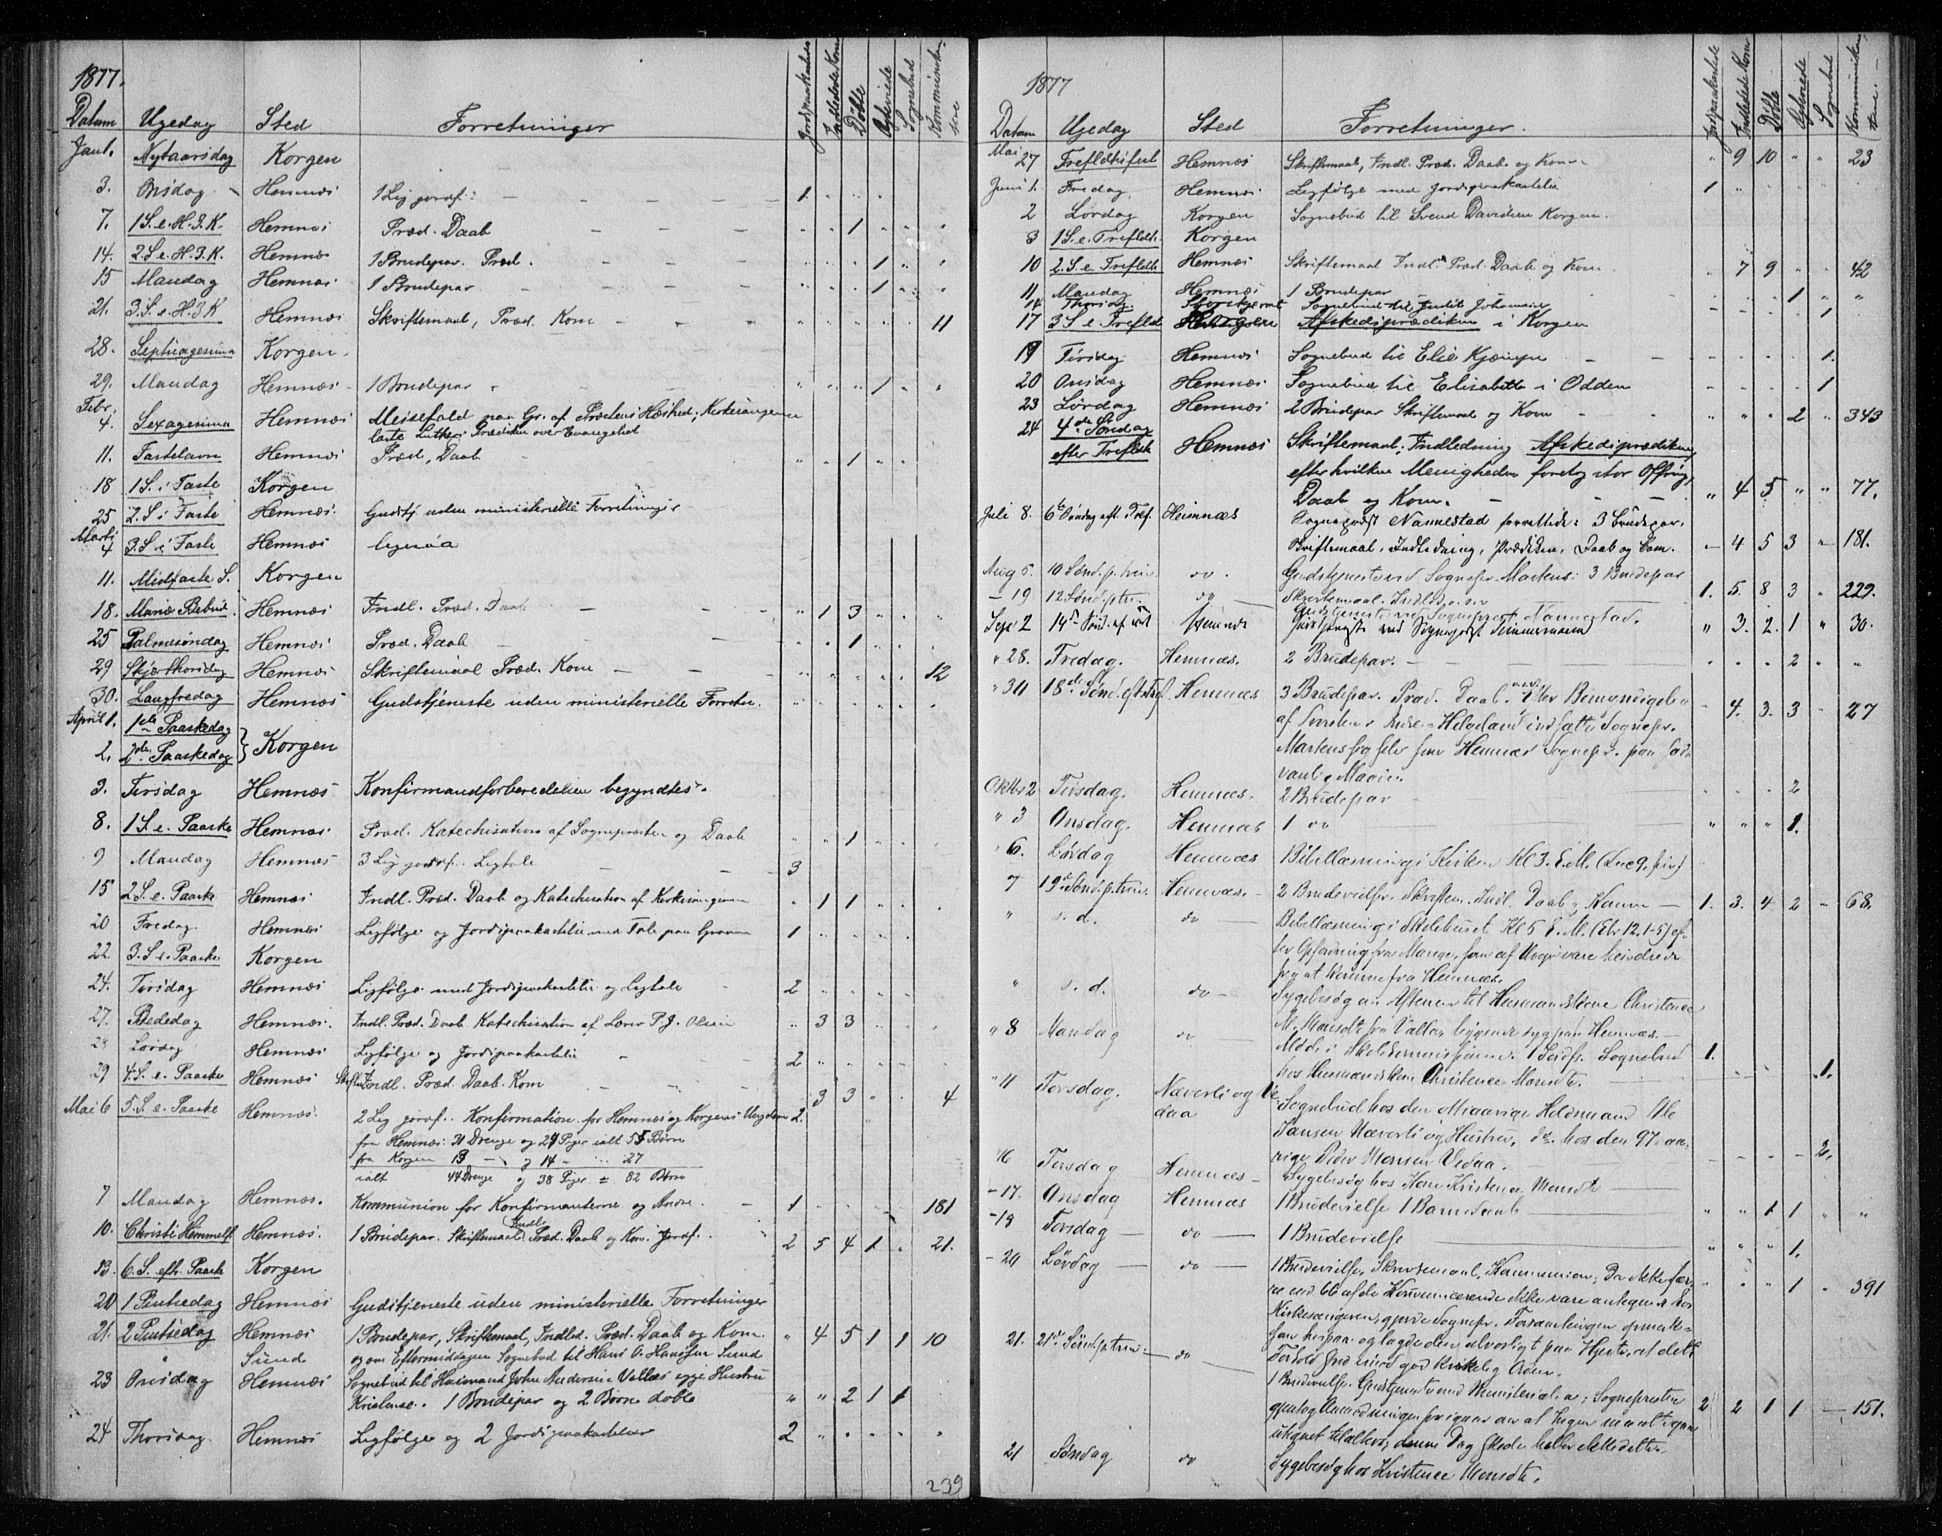 1877.
Datum Ugedag Sted Forretninger Jordpaakastede Indledede Kon Døbte Sognebud Kommunikan
Jan 1. Nytaarsdag Korgen
3. Onsdag Hemnæs 1 Lig jordf. 1
7. 1 S. e. H. 3. K. Hemnæs Præd. Daab 1
14. 2 S. e. H. 3. K. Hemnæs 1 Brudepar. Præd. 1
15 Mandag Hemnæs 1 Brudepar 1
21. 3. S. e. H. 3. K Hemnæs Skriftemaal, Præd. Kom 11
28. Septuagesima Korgen.
29. Mandag Hemnæs 1 Brudepar 1
Febr. 4. Sexagesima Hemnæs Messefald paa Gr. af Præstens Hæshed; Kirkesangeren
læste Luthers Prædiken over Evangeliet
11. Fastelavn Hemnæs Præd, Daab 1
18 1 S. i Faste Korgen
25 2. S. i Faste Hemnæs. Gudstj uden ministerielle Forretninger
Marts 4 3. S. i Faste Hemnæs ligesaa
11. Midfaste S. Korgen
18. Mariæ Bebud. Hemnæs Indl. Præd. Daab 1 3
25 Palmesøndag Hemnæs Præd. Daab 1
29 Skjærthorsdag Hemnæs Skriftemaal Præd. Kom 12
30. Langfredag Hemnæs Gudstjeneste uden ministerielle Forretn.
April 1. 1ste Paaskedag
2. 2den Paaskedag } Korgen
3. Tirsdag Hemnæs Konfirmandforberedelsen begyndtes.
8. 1 S. e. Paaske Hemnæs Præd. Katechisation af Sognepræsten og Daab 1
9 Mandag Hemnæs 3 Lig jordf. Ligtale 3
15 2 S. e. Paaske Hemnæs Indl. Præd. Daab og Katechisation af Kirkesangeren 1 1
20 Fredag Hemnæs Ligfølge og Jordspaakastelse med Tale paa Graven 1
22. 3. S. e. Paaske Korgen
24. Tirsdag Hemnæs Ligfølge med Jordspaakastelse og Ligtale 2
27. Bededag Hemnæs. Indl. Præd. Daab Katechisation af Lærer P. J. Olsen 3 3
28 Lørdag Hemnæs Ligfølge og Jordspaakastelse 2
29 4. S. e. Paaske Hemnæs Skriftm Indl. Præd. Daab. Kom 3 3 4
Mai 6 5. S. e. Paaske Hemnæs. 2 Lig jordf. Konfirmation for Hemnæs og Korgens Ungdom 2.
fra Hemnæs 31 Drenge og 24 Piger ialt 55 Børn
fra Korgen 13 og 14 27
ialt 44 Drenge og 38 Piger = 82 Børn
7 Mandag Hemnæs. Kommunion for Konfirmanterne og Andre 1 181
10. Christi Himmelf. Hemnæs. 1 Brudepar. Skriftemaal Indl. Præd. Daab og Kom. Jordf. 2 5 4 1 21.
13. 6. S. eft. Paaske Korgen
20 1 Pintsedag Hemnæs Gudstjeneste uden ministerielle Forretninger
21. 2 Pintsedag Hemnæs 1 Brudepar, Skriftemaal, Indled. Præd. Daab og Kom. 4 5 1 1 10
Sund og om Eftermiddagen Sognebud til Hans O. Hanssen Sund
23 Onsdag Hemnæs Sognebud til Husmand John Andersen Vallas syge Hustru
Kristense. 1 Brudepar og 2 Børn døbte 2 1 1
24 Thorsdag. Hemnæs Ligfølge og 2 Jordspaakastelser 2
239
1877
Datum Ugedag Sted Forretninger. Jordpaakastede Indledede Kon Døbte Sognebud Kommunikan
Mai 27 Trefoldhfest Hemnæs Skriftemaal, Indl. Præd. Daab og Kom 9 10 23
Juni 1. Fredag Hemnæs Ligfølge med Jordspaakastelse 1
2 Lørdag Korgen Sognebud til Svend Davidsen Korgen.
3 1 S. e. Trefoldh. Korgen
10 2. S. e. Trefoldh Hemnæs Skriftemaal Indl. Præd. Daab og Kom 7 9 42
11 Mandag Hemnæs 1 Brudepar 1
14 Thorsdag. Sognebud til Judit Johansen 1
17 3 S. e. Trefoldh Afskedsprædiken i Korgen
19 Tirsdag Hemnæs Sognebud til Elie Kjæmpe 1.
20 Onsdag Hemnæs Sognebud til Elisabeth i Odden 1
23 Lørdag Hemnæs 2 Brudepar Skriftemaal og Kom 2 343
24 4de Søndag
efter Trefoldh Hemnæs Skriftemaal, Indledning Afskedsprædiken
efter hvilken Menigheden foretog stor Offring,
Daab og Kom. 4 5 77.
Juli 8. 6te Søndag eft. Tref. Hemnæs Sognepræst Nannestad forrettede: 3 Brudepar.
Skriftemaal, Indledning, Prædiken, Daab og Com. 4 5 3 181.
Aug 5. 10 Sønd. p. trin. do. Gudstjeneste ved Sognepr. Martens: 3 Brudepar 1. 5 8 3 229.
19 12 Sønd p tr. do Skriftemaal. Indledn.
Gudstjeneste ved Sognepræst Nannestad.
Sept 2 14de Sønd. ef. tref Hemnæs Gudstjeneste ved Sognepræst Zimmermann 3. 2. 1 30.
28. Fredag. Hemnæs. 2 Brudepar. 2
30 18de Sønd. eft. tref Hemnæs 3 Brudepar. Præd. Daab. Efter Bemyndigelse
af Provsten i Indre Helgeland indsatte Sognepr.
Martens sig selv som Hemnæs Sognepr. paa
4. 3. 3 27
Oktbr 2 Tirsdag. Hemnæs. 2 Brudepar 2
3 Onsdag. Hemnæs 1 do 1.
6. Lørdag Hemnæs Bibellæsning i Kirken Kl 3. E. M. (Luc 9.
7 19de Sønd p trin. Hemnæs. 2 Brudevielser. Skriftem. Indl. Daab. Komm 1. 3. 4 2 68.
s. d. do Bibellæsning i Skolehuset Kl 5 E. M. (Ebr 12. 1-5) ef-
ter Opfordring fra Mange, som af Veir vare hindrede
fra at komme fra Hemnæs.
s. d. do Sygebesøg om Aftenen til Husmandskone Christence
M. Monsdt. fra Valla, liggende syg paa Hemnæs.
8 Mandag do Møde i Skolekommissionen. 1 Jordf. Sognebud 1.
hos Husmandskone Christence Monsdt. 1.
11 Torsdag. Næverli og Ve
daa Sognebud hos den 91 aarige Huusmand Ole
Jansen Næverli og Hustru, do. hos den 97 aa-
rige Peder Monsen Vedaa. 2.
16 Tirsdag Hemnæs Sygebesøg hos Kone Kristence Monsdt
17. Onsdag Hemnæs 1 Brudevielse 1 Barnedaab 1 1
19 Torsdag do 1 Brudevielse 1.
20 Lørdag do 1 Brudevielse, Skriftemaal, Kommunion; Da ikke fær-
re end 66 af de Kommunicerende ikke vare antegnede hos
Kirkesangeren, gjorde Sognepr. Forsamlingen opmærk-
som herpaa og lagde den alvorligt paa Hjerte, at dette
Forhold stred mod god kirkelig Orden. 1 391
21. 21de Sønd p trin. do 1 Brudevielse. Gudstjeneste med Ministerial. a; Sognepræsten
2 2 1 1 151.
21 Søndag do Sygebesøg hos Kristence Monsdt.